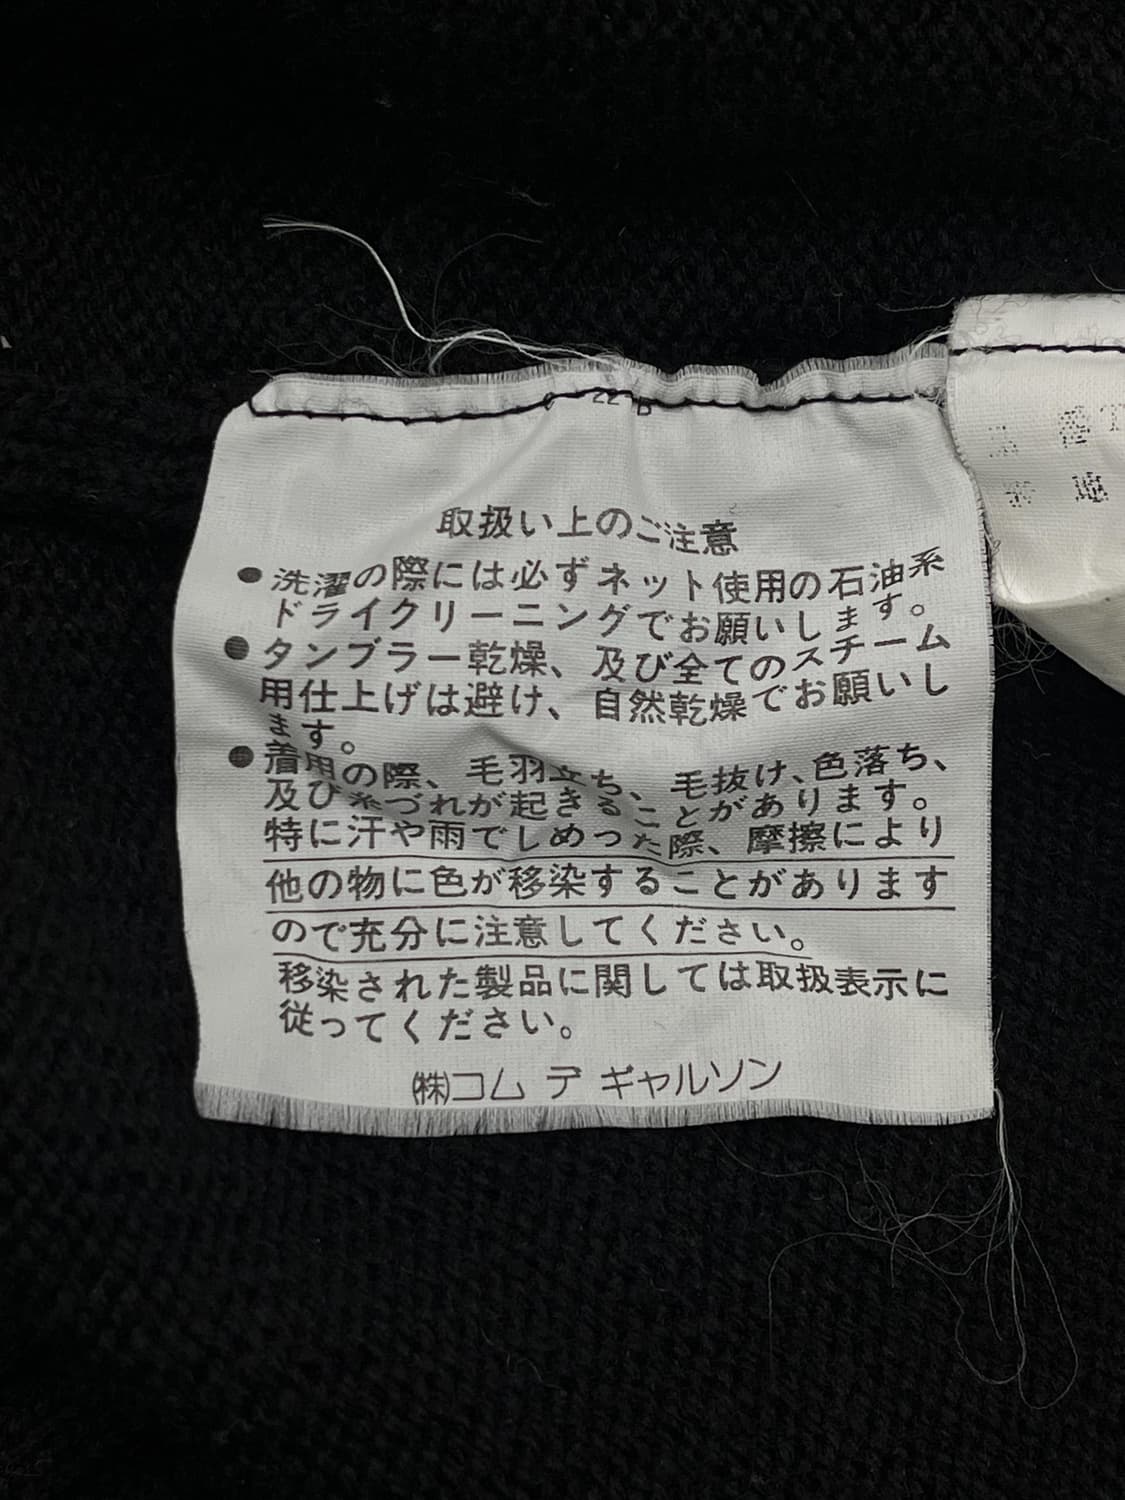 22 B
取扱い上のご注意
●洗濯の際には必ずネット使用の石油系
ドライクリーニングでお願いします。
●タンブラー乾燥、及び全てのスチーム
用仕上げは避け、自然乾燥でお願いし
ます。
●着用の際、毛羽立ち、毛抜け、色落ち、
及び糸づれが起きることがあります。
特に汗や雨でしめった際、摩擦により
他の物に色が移染することがあります
ので充分に注意してください。
移染された製品に関しては取扱表示に
従ってください。
㈱コム デ ギャルソン
地